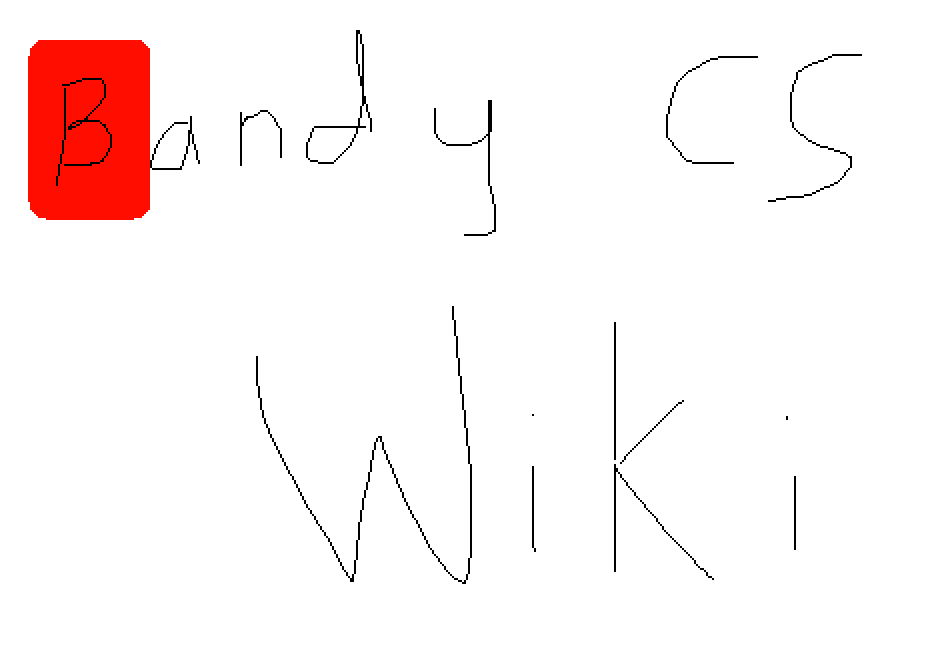 Bandy CS
Wiki